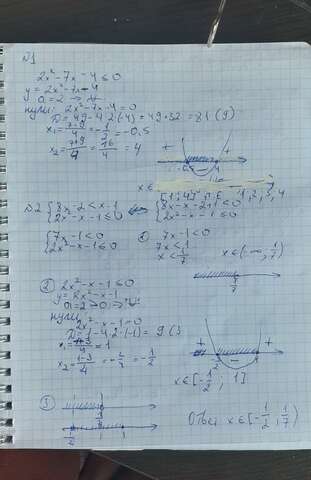 N1
2x² - 7x - 4 ≤ 0
y = 2x² - 7x - 4
a = 2 →
нули: 2x² - 7x - 4 = 0
D = 49 - 4·2·(-4) = 49 + 32 = 81 (9)
x₁ = 7-9/4 = -1/2 = -0,5
x₂ = 7+9/4 = 16/4 = 4
+ - +
-0,5 4
x ∈
1, 2, 3, 4
N2 { 8x - 2 < x - 1 { 8x - x - 2 + 1 < 0
{ 2x² - x - 1 ≤ 0 { 2x² - x - 1 ≤ 0
{ 7x - 1 < 0 7x - 1 < 0
{ 2x² - x - 1 ≤ 0 7x < 1
x < 1/7 x ∈ (-∞, 1/7)
1/7
② 2x² - x - 1 ≤ 0
y = 2x² - x - 1
a = 2 > 0 →
нули
2x² - x - 1 = 0
D = 1 - 4·2(-1) = 9 (3)
x₁ = 1+3/4 = 1
x₂ = 1-3/4 = -2/4 = -1/2
+ - +
-1/2 1
x ∈ [-1/2, 1]
③
1/7
-1/2 1
Ответ x ∈ [-1/2, 1/7)